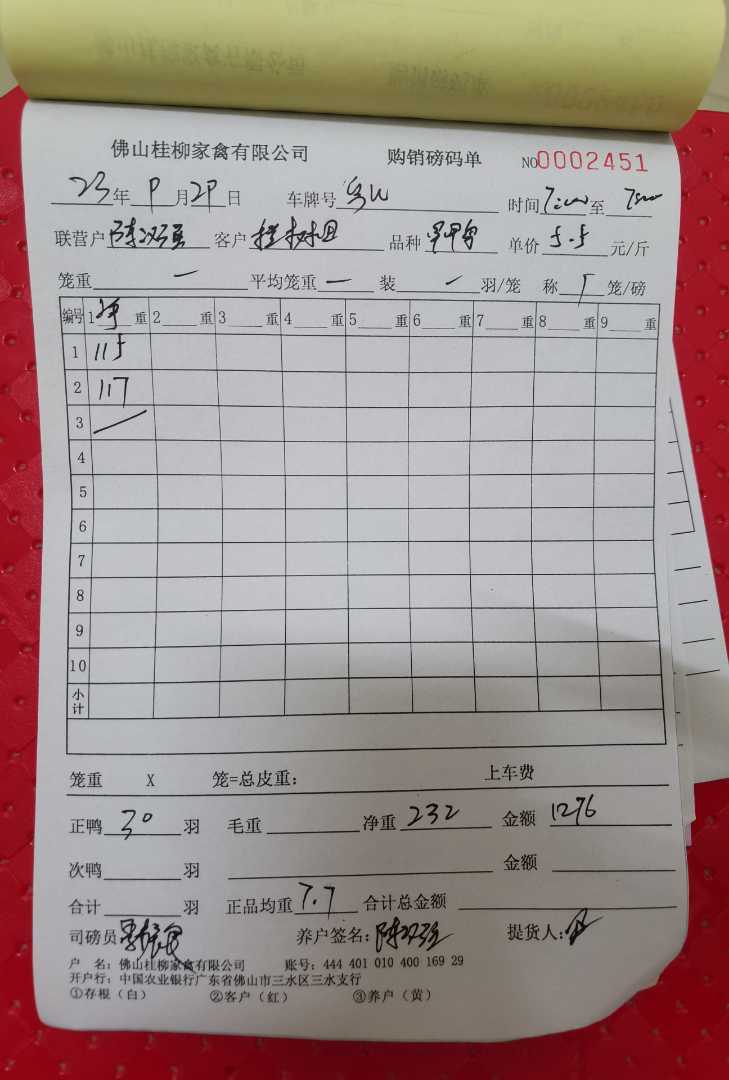 佛山桂柳家禽有限公司 购销磅码单 NO0002451
23年9月29日 车牌号 时间 至
联营户 陈 客户 桂 品种 单价 5.5 元/斤
笼重 一 平均笼重 一 装 一 羽/笼 称 笼/磅
编号 1 净 重 2 重 3 重 4 重 5 重 6 重 7 重 8 重 9 重
1 115
2 117
3
4
5
6
7
8
9
10
小计
笼重 X 笼=总皮重: 上车费
正鸭 30 羽 毛重 净重 232 金额 1276
次鸭 羽 金额
合计 羽 正品均重 7.7 合计总金额
司磅员 养户签名: 陈 提货人:
户 名: 佛山桂柳家禽有限公司 账号: 444 401 010 400 169 29
开户行: 中国农业银行广东省佛山市三水区三水支行
①存根(白) ②客户(红) ③养户(黄)